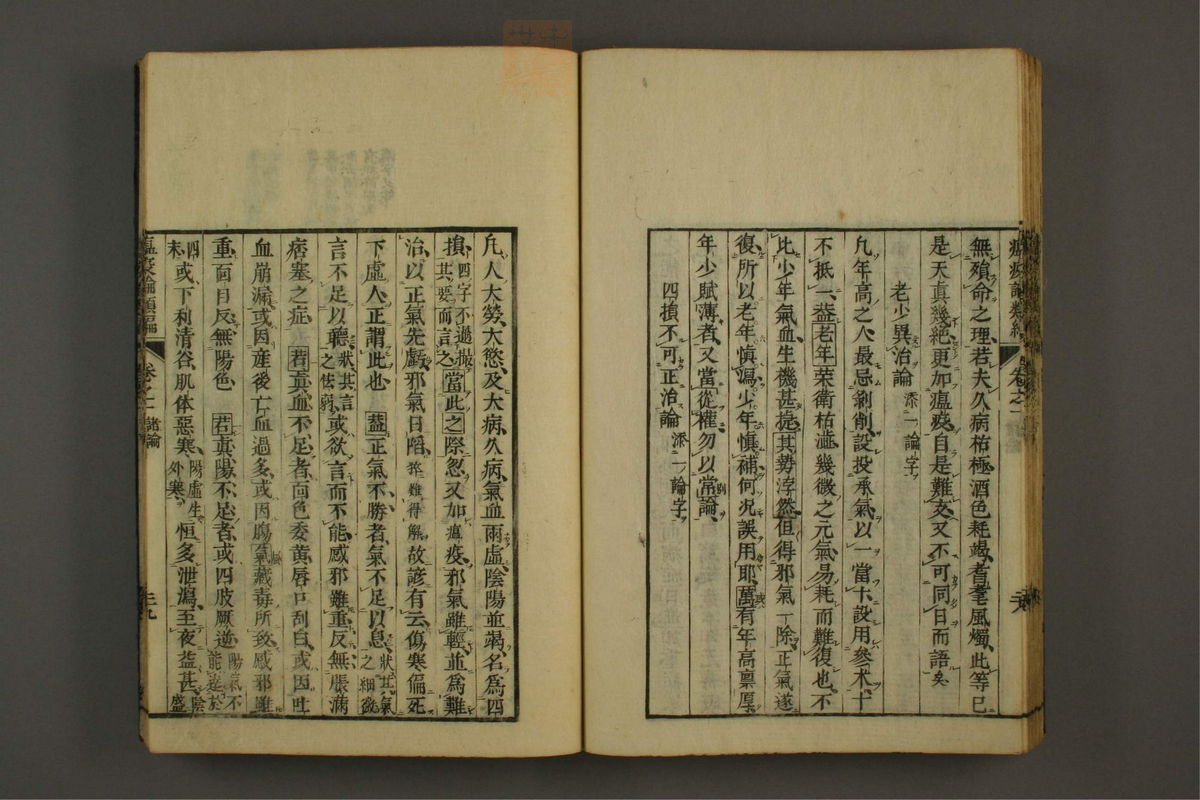 無殞命之理若夫久病祐極酒色耗竭耆耄風燭此等已
是天真幾絶更加瘟疫自是難支又不可同日而語矣
老少異治論 添一論字
凡年高之人最忌剥削設投承氣以一當十設用參术十
不抵一葢老年荣衛枯澁幾微之元氣易耗而難復也不
比少年氣血生機甚捷其勢浡然但得邪氣一除正氣遂
復所以老年慎瀉少年慎補何况誤用耶萬有年高禀厚
年少賦薄者又當從權勿以常論
四損不可正治論 添一論字
凡人大勞大慾及大病久病氣血兩虛陰陽並竭名爲四
損四字不過撮其要而言之當此之際忽又加瘟疫邪氣雖輕並爲難
治以正氣先虧邪氣日陷猝難得解故諺有云傷寒偏死
下虛人正謂此也葢正氣不勝者氣不足以息狀其氣之細微
言不足以聽狀其言之怯弱或欲言而不能感邪雖重反無脹滿
痞塞之症若真血不足者面色委黄唇口刮白或因吐
血崩漏或因産後亡血過多或因腸氣藏毒所致感邪雖
重面目反無陽色若真陽不足者或四肢厥逆陽氣不能達於
四末或下利清谷肌体惡寒陽虛生外寒恒多泄瀉至夜益甚陰盛
瘟疫論類編 卷之二 諸論